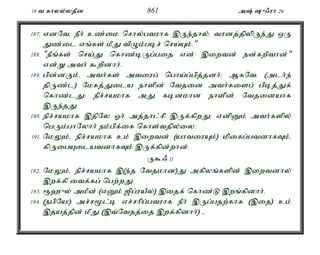 19 வ காலல்லதீன 861 அஷ் ஷுஃரா 26
187. எனவே, நீர் உண்மை சொல்பவராக இருந்தால், வானத்திலிருந்து ஒரு
துண்டை எங்கள் மீது விழும்படிச் செய்யும்."
188. "நீங்கள் செய்து கொண்டிருப்பதை என் இறைவன் நன்கறிவான்"
என்று அவர் கூறினார்.
189. பின்னரும், அவர்கள் அவரைப் பொய்ப்பித்தனர்; ஆகவே, (அடர்ந்
திருண்ட) மேகத்துடைய நாளின் வேதனை அவர்களைப் பிடித்துக்
கொண்டது; நிச்சயமாக அது கடினமான நாளின் வேதனையாக
இருந்தது.
190. நிச்சயமாக இதிலே ஓர் அத்தாட்சி இருக்கிறது; எனினும் அவர்களில்
பெரும்பாலோர் நம்பிக்கை கொள்வதில்லை.
191. மேலும், நிச்சயமாக உம் இறைவன் (யாவரையும்) மிகைப்பவனாகவும்,
கிருபையுடையவனாகவும் இருக்கின்றான்.
ருகூஃ 11
192. மேலும், நிச்சயமாக இ(ந்த வேதமான)து அகிலங்களின் இறைவனால்
இறக்கி வைக்கப் பெற்றது.
193. ரூஹுல் அமீன் (எனும் ஜிப்ரயீல்) இதைக் கொண்டு இறங்கினார்.
194. (நபியே) அச்சமூட்டி எச்சரிப்பவராக நீர் இருப்பதற்காக (இதை) உம்
இதயத்தின் மீது (இவ்வேதத்தை இறக்கினார்) _